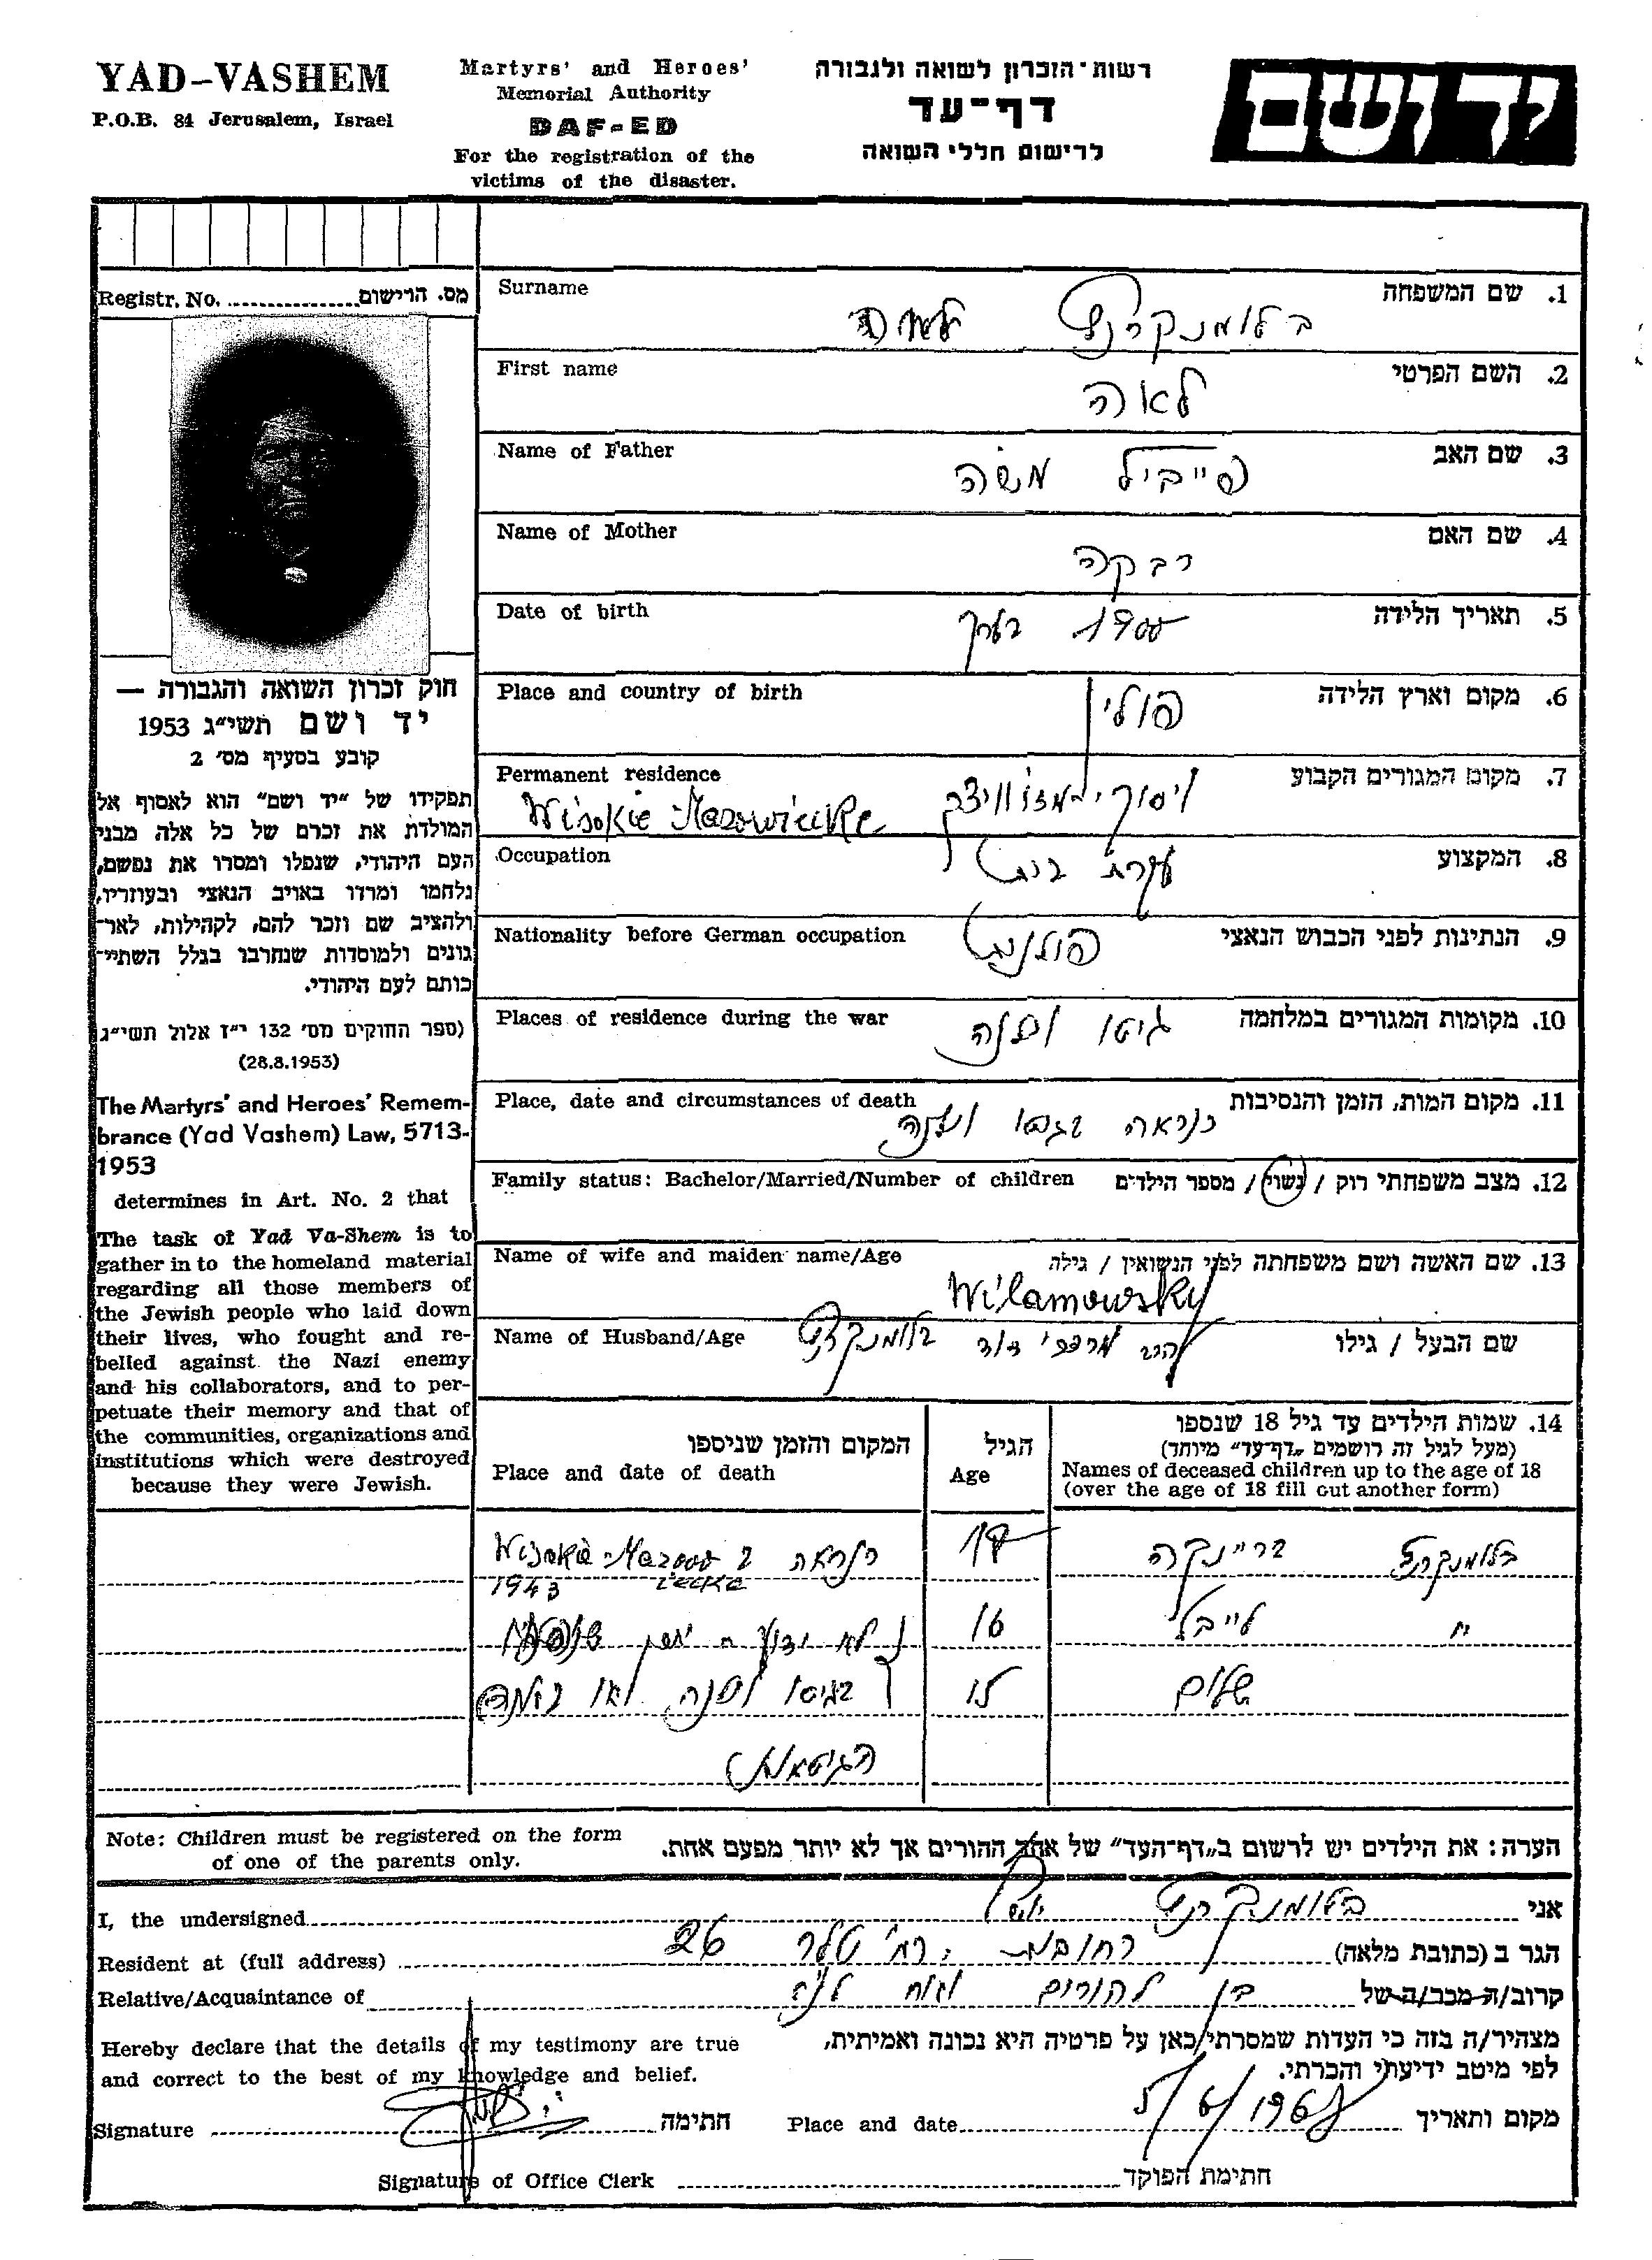 YAD-VASHEM
P.O.B. 84 Jerusalem, Israel
Martyrs' and Heroes'
Memorial Authority
DAF-ED
For the registration of the
victims of the disaster.
רשות-הזכרון לשואה ולגבורה
דף-עד
לרישום חללי השואה
יד ושם
Registr. No. מס. הרישום
חוק זכרון השואה והגבורה —
יד ושם תשי"ג 1953
קובע בסעיף מס' 2
תפקידו של "יד ושם" הוא לאסוף אל
המולדת את זכרם של כל אלה מבני
העם היהודי, שנפלו ומסרו את נפשם,
נלחמו ומרדו באויב הנאצי ובעוזריו,
ולהציב שם וזכר להם, לקהילות, לאר־
גונים ולמוסדות שנחרבו בגלל השתיי־
כותם לעם היהודי.
(ספר החוקים מס' 132 י"ז אלול תשי"ג
(28.8.1953)
The Martyrs' and Heroes' Remem-
brance (Yad Vashem) Law, 5713-
1953
determines in Art. No. 2 that
The task of Yad Va-Shem is to
gather in to the homeland material
regarding all those members of
the Jewish people who laid down
their lives, who fought and re-
belled against the Nazi enemy
and his collaborators, and to per-
petuate their memory and that of
the communities, organizations and
institutions which were destroyed
because they were Jewish.
Surname 1. שם המשפחה
בלומנקרנץ
First name 2. השם הפרטי
לאה
Name of Father 3. שם האב
פייביל משה
Name of Mother 4. שם האם
רבקה
Date of birth 5. תאריך הלידה
1900 בערך
Place and country of birth 6. מקום וארץ הלידה
פולין
Permanent residence 7. מקום המגורים הקבוע
Wisokie Mazowieckie ויסוקי-מזוביצק
Occupation 8. המקצוע
עקרת בית
Nationality before German occupation 9. הנתינות לפני הכבוש הנאצי
פולנית
Places of residence during the war 10. מקומות המגורים במלחמה
גיטו וילנה
Place, date and circumstances of death 11. מקום המות, הזמן והנסיבות
כנראה בגטו וילנה
Family status: Bachelor/Married/Number of children 12. מצב משפחתי רוק / נשוי / מספר הילדים
Name of wife and maiden name/Age 13. שם האשה ושם משפחתה לפני הנשואין / גילה
Wilamowsky
Name of Husband/Age שם הבעל / גילו
מרדכי דוד בלומנקרנץ
14. שמות הילדים עד גיל 18 שנספו
(מעל לגיל זה רושמים "דף-עד" מיוחד)
Names of deceased children up to the age of 18
(over the age of 18 fill out another form)
הגיל
Age
המקום והזמן שניספו
Place and date of death
בלומנקרנץ בריינקה 17 כנראה ב Wisokie-Mazow
1943
" לייבל 16 לא ידוע
שלום 15 בגיטו וילנה או באחד
הגיטאות
Note: Children must be registered on the form
of one of the parents only.
הערה: את הילדים יש לרשום ב"דף-העד" של אחד ההורים אך לא יותר מפעם אחת.
I, the undersigned בלומנקרנץ אני
Resident at (full address) רחובות, 26 הגר ב (כתובת מלאה)
Relative/Acquaintance of בן להורים קרוב/ה מכר/ה של
Hereby declare that the details of my testimony are true
and correct to the best of my knowledge and belief.
מצהיר/ה בזה כי העדות שמסרתי כאן על פרטיה היא נכונה ואמיתית,
לפי מיטב ידיעתי והכרתי.
Signature חתימה Place and date 5/6/1968 מקום ותאריך
Signature of Office Clerk חתימת הפוקד